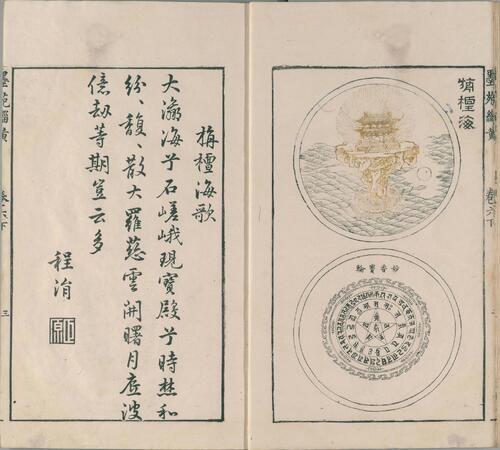 墨苑緇黃
卷六下
栴檀海
妙香寶輪
栴檀海歌
大瀛海兮石嵯峨現寶殿兮時焚和
紛、馥、散大羅慈雲開曙月波
億劫等期豈云多
程涓
墨苑緇黃
卷六下
三